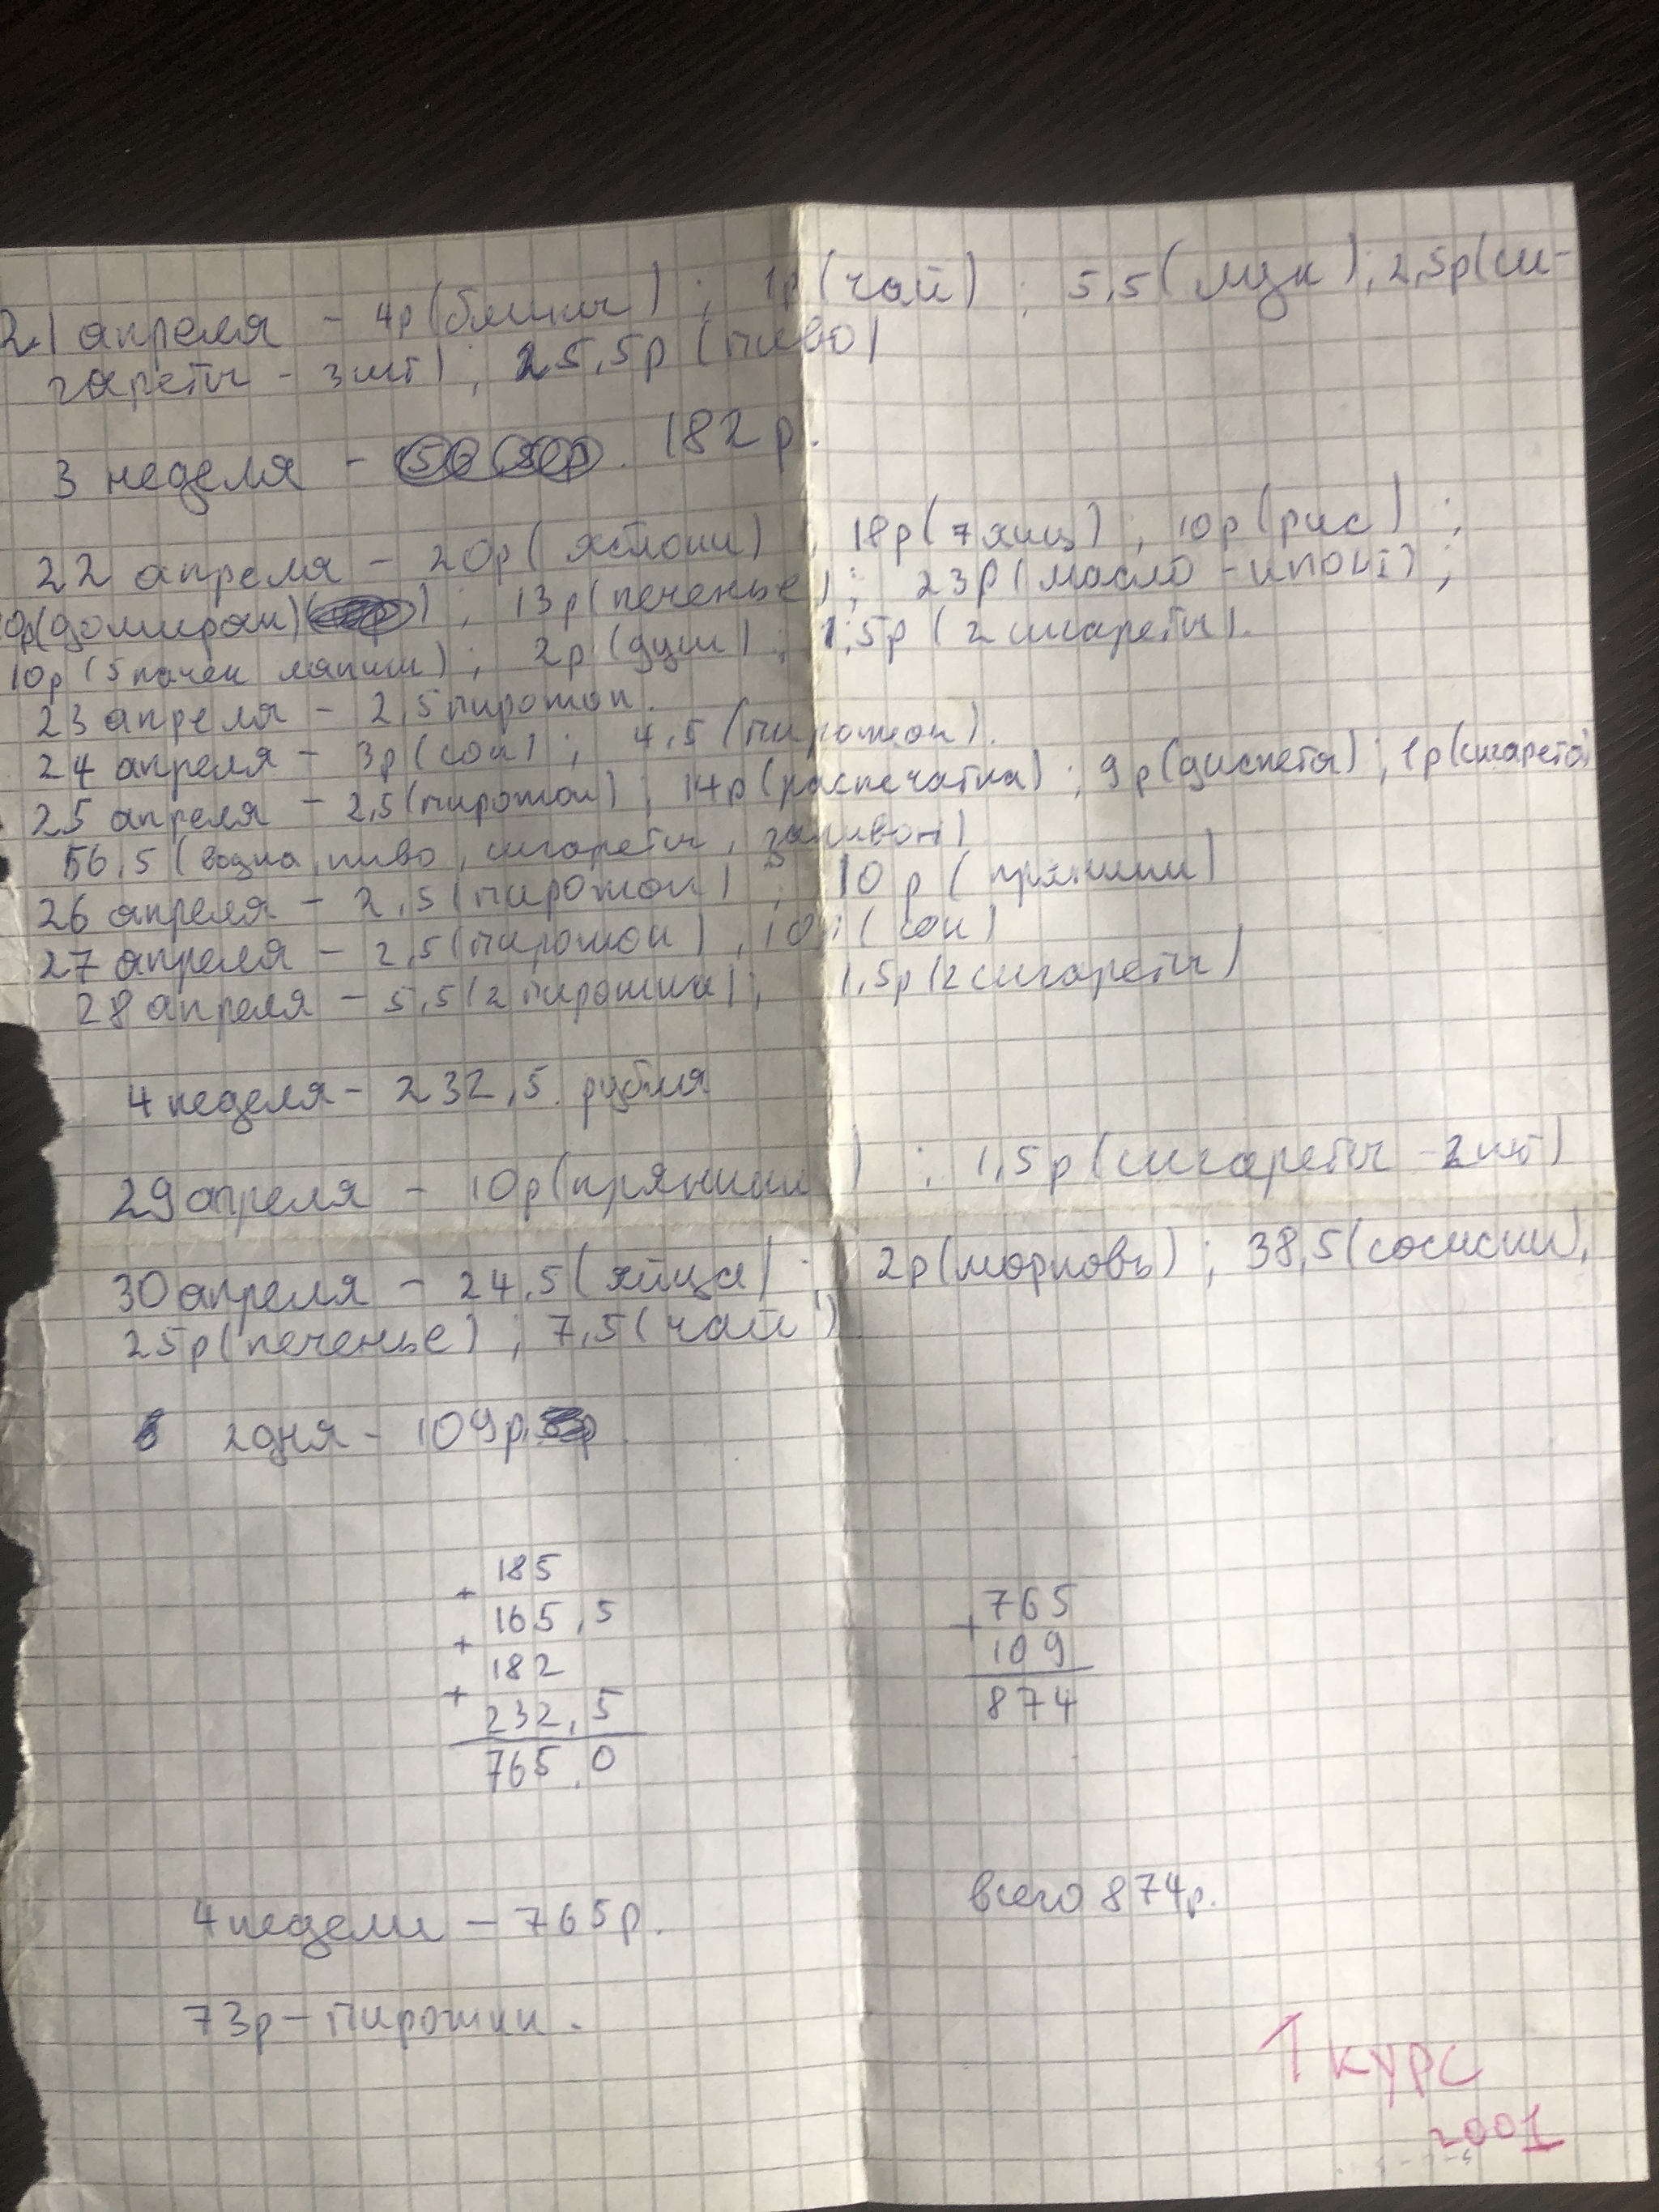 21 апреля - 4р(блины) ; 1р(чай) ; 5,5(лук); 2,5р(си-
гареты - 3шт) ; 25,5р (пиво)
3 неделя - 182 р.
22 апреля - 20р( яблоки) ; 18р(7 яиц) ; 10р(рис) ;
(домиран) ; 13р(печенье) ; 23р(масло - ) ;
10р (5 пачек лапши) ; 2р (душ) ; 1,5р (2 сигареты).
23 апреля - 2,5 пирожок.
24 апреля - 3р(сок) ; 4,5 (пирожок).
25 апреля - 2,5(пирожок) ; 14р(распечатка) ; 9р(дискета) ; 1р(сигарета)
56,5 (водка, пиво, сигареты, запивон)
26 апреля - 2,5(пирожок) ; 10 р ( пряники)
27 апреля - 2,5(пирожок) , 10 (сок)
28 апреля - 5,5(2 пирожка) ; 1,5р (2 сигареты)
4 неделя - 232,5 рубля
29 апреля - 10р(пряники) ; 1,5р(сигареты - 2шт)
30 апреля - 24,5(яйца) ; 2р(морковь) ; 38,5(сосиски),
25р(печенье) ; 7,5(чай)
2 дня - 109р.
185
+
165,5
+
182
+
232,5
765,0
765
+
109
874
4 недели - 765р.
всего 874р.
73р - пирожки.
1 курс
2001